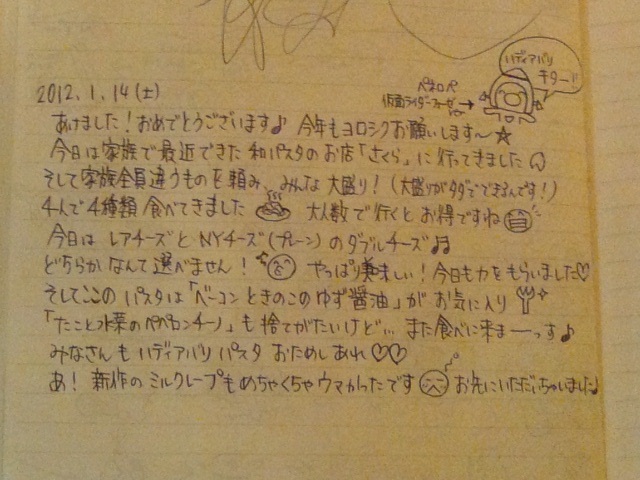 ハディアバリ
キター!!
ペネロペ
仮面ライダーフォーゼ→
2012.1.14(土)
あけました!おめでとうございます♪ 今年もヨロシクお願いします〜☆
今日は家族で最近できた和パスタのお店「さくら」に行ってきました
そして家族全員違うものを頼み、みんな大盛り!(大盛りがタダでできるんです!)
4人で4種類食べてきました 大人数で行くとお得ですね
今日はレアチーズとNYチーズ(プレーン)のダブルチーズ♫
どちらかなんて選べません! やっぱり美味しい!今日も力をもらいました♡
そしてここのパスタは「ベーコンときのこのゆず醤油」がお気に入り
「たこと水菜のペペロンチーノ」も捨てがたいけど… また食べに来まーーっす♪
みなさんもハディアバリパスタおためしあれ♡♡
あ!新作のミルクレープもめちゃくちゃウマかったです お先にいただいちゃいました♪